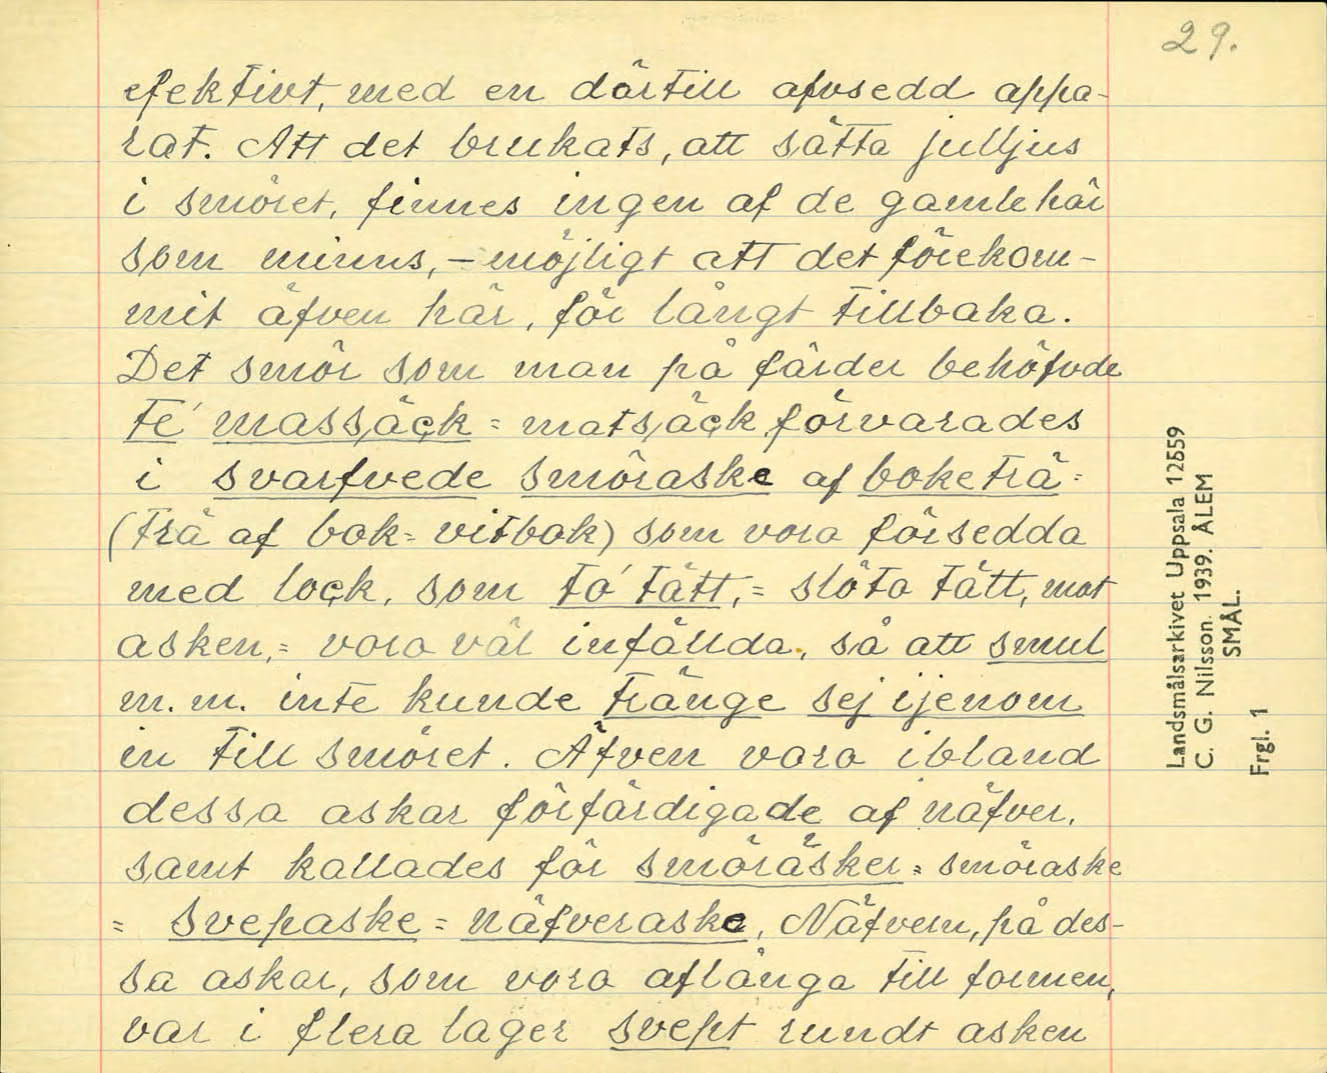 29.
efektivt, med en därtill afvsedd appa-
rat. Att det brukats, att sätta julljus
i smöret, finnes ingen af de gamle här
som minns, - möjligt att det förekom-
mit äfven här, för långt tillbaka.
Det smör som man på färder behöfvde
te´ massäçk = matsäçk förvarades
i svarfvede smöraske af boketrä =
(trä af bok = vitbok) som vora försedda
med loçk, som to´ tätt, = slöto tätt, mot
asken, = voro väl infällda, så att smul
m. m. inte kunde tränge sej ijenom
in till smöret. Äfven voro ibland
dessa askar förfärdigade af näfver,
samt kallades för smöräsker = smöraske
= svepaske = näfveraske, Näfvern, på des-
sa askar, som voro aflånga till formen,
var i flera lager svept rundt asken
Landsmålsarkivet Uppsala 12559
C. G. Nilsson. 1939. ÅLEM
SMÅL.
Frgl. 1